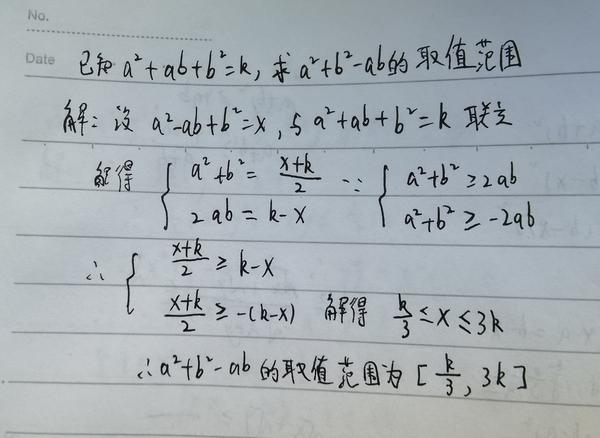 No.
Date 已知 a²+ab+b²=k, 求 a²+b²-ab的取值范围
解: 设 a²-ab+b²=x, 与 a²+ab+b²=k 联立
解得 { a²+b²= (x+k)/2 ∵ { a²+b²≥2ab
2ab=k-x a²+b²≥-2ab
∴ { (x+k)/2 ≥ k-x
(x+k)/2 ≥ -(k-x) 解得 k/3 ≤ x ≤ 3k
∴ a²+b²-ab 的取值范围为 [k/3, 3k]